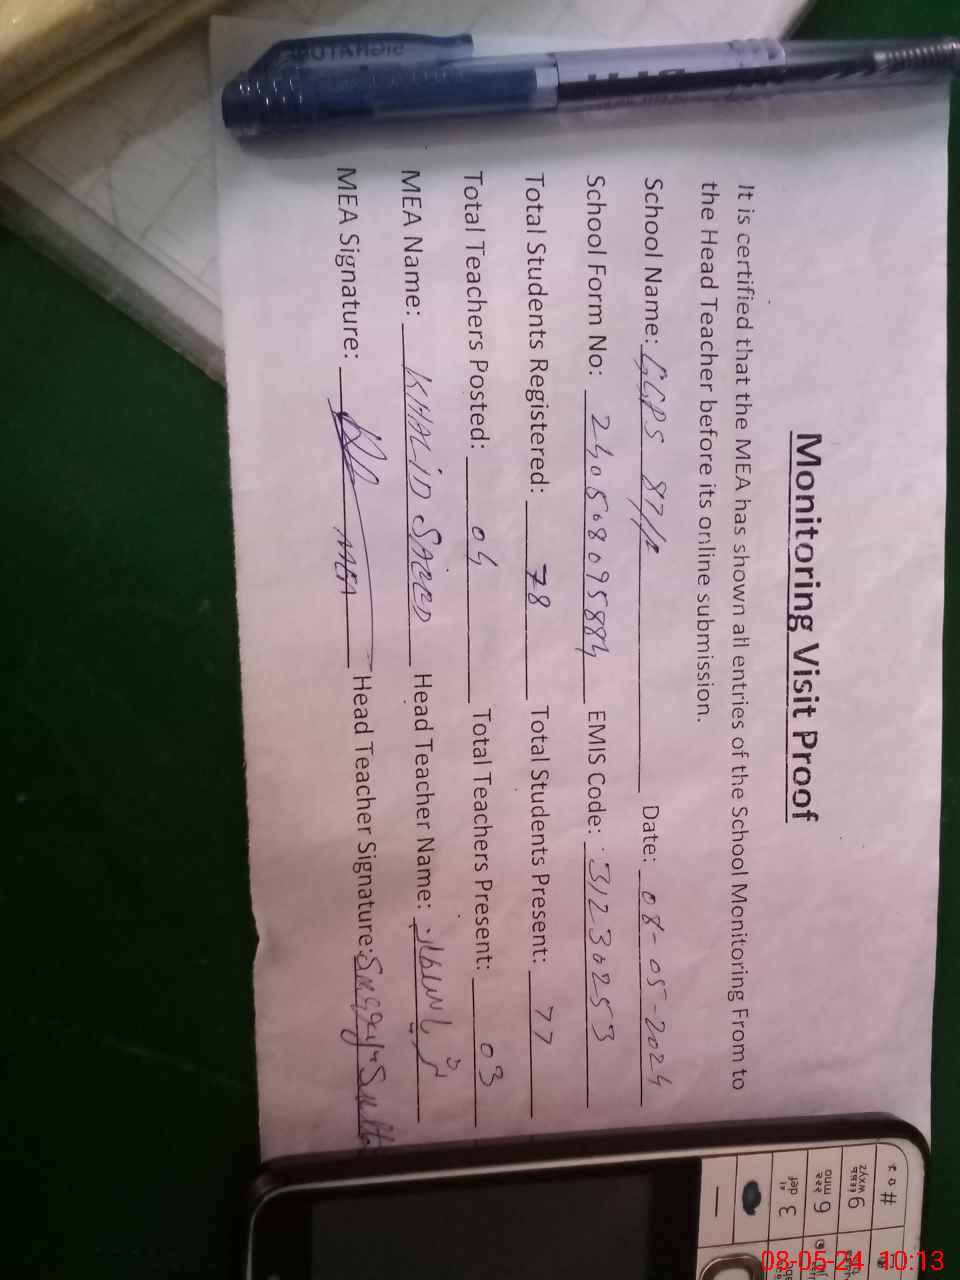 Monitoring Visit Proof
It is certified that the MEA has shown all entries of the School Monitoring From to
the Head Teacher before its online submission.
School Name: GGPS 87/P Date: 08-05-2024
School Form No: 240508095884 EMIS Code: 31230253
Total Students Registered: 78 Total Students Present: 77
Total Teachers Posted: 04 Total Teachers Present: 03
MEA Name: KHALID SAEED Head Teacher Name:
MEA Signature: MEA Head Teacher Signature:
#
9 wxyz
6 mno
3 def
08-05-24 10:13